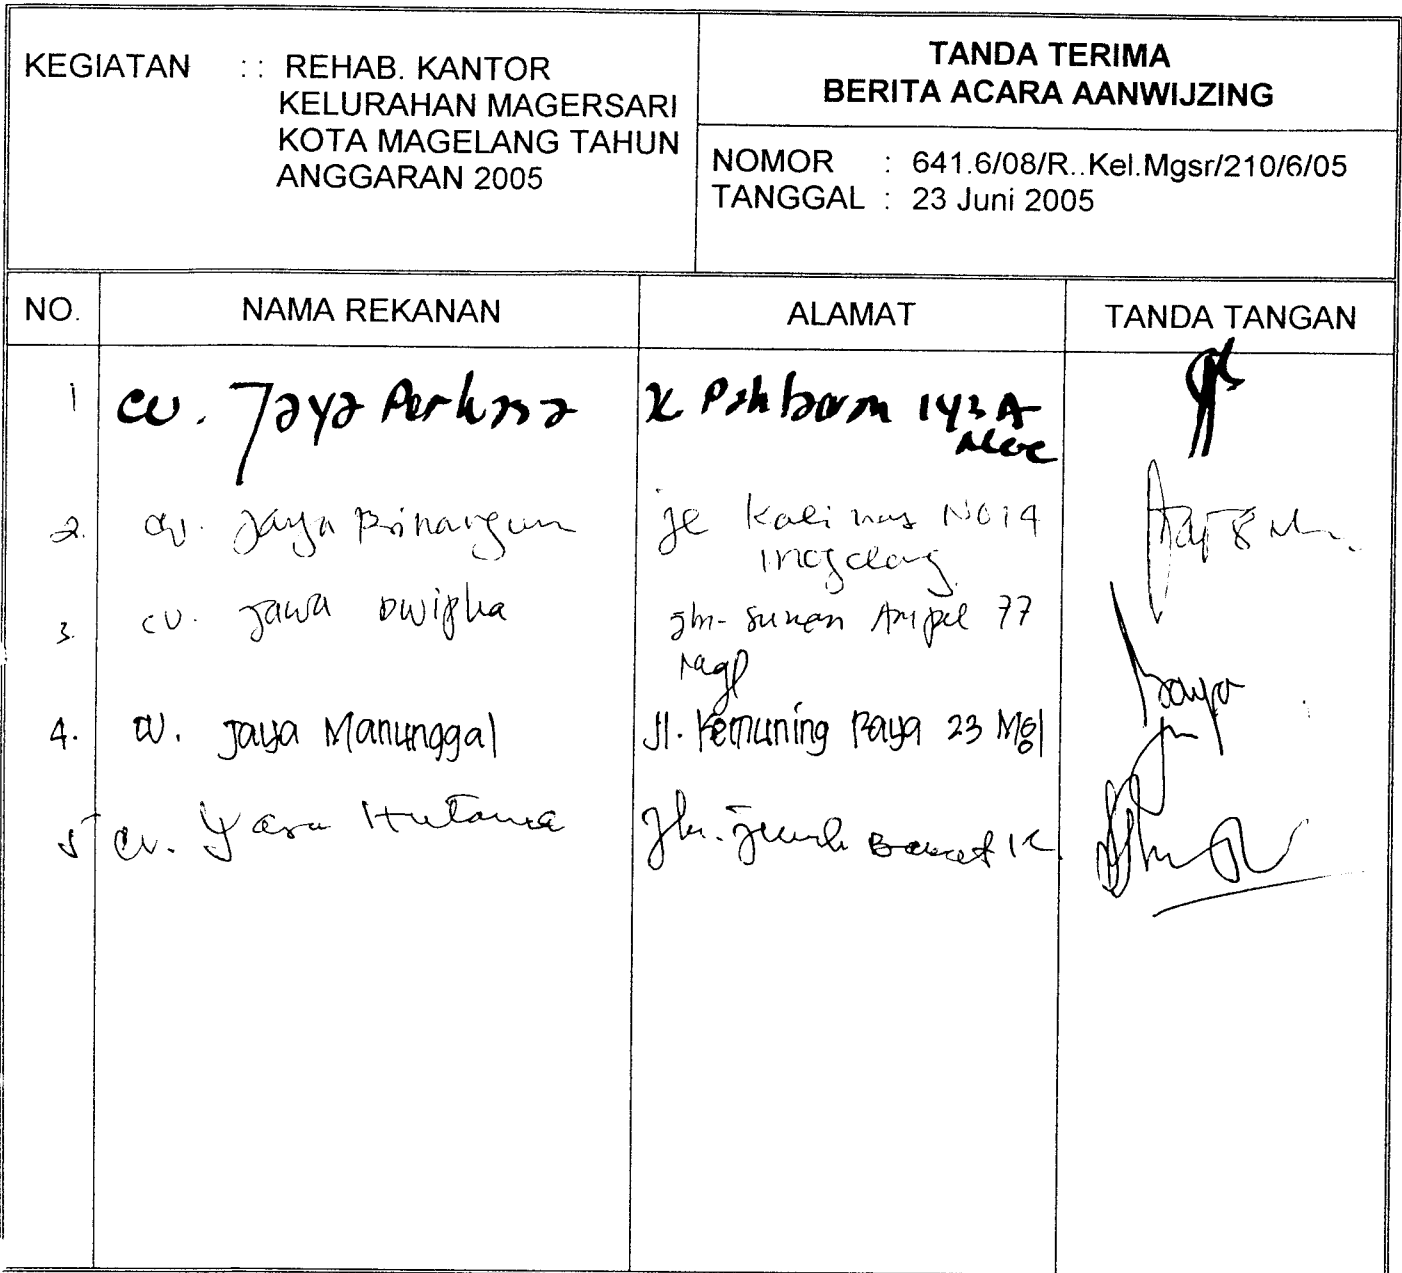 KEGIATAN : : REHAB. KANTOR
KELURAHAN MAGERSARI
KOTA MAGELANG TAHUN
ANGGARAN 2005
TANDA TERIMA
BERITA ACARA AANWIJZING
NOMOR : 641.6/08/R..Kel.Mgsr/210/6/05
TANGGAL : 23 Juni 2005
NO. NAMA REKANAN ALAMAT TANDA TANGAN
1 CV. Jaya Perkasa 143 A
2. CV. Jaya Binangun Jl Kali No 14
3. CV. Jawa Dwipha Jln. Sunan Ampel 77
Magl
4. CV. Jaya Manunggal Jl. Kemuning Raya 23 Mgl
5 CV. Yasa Hutama Jln.